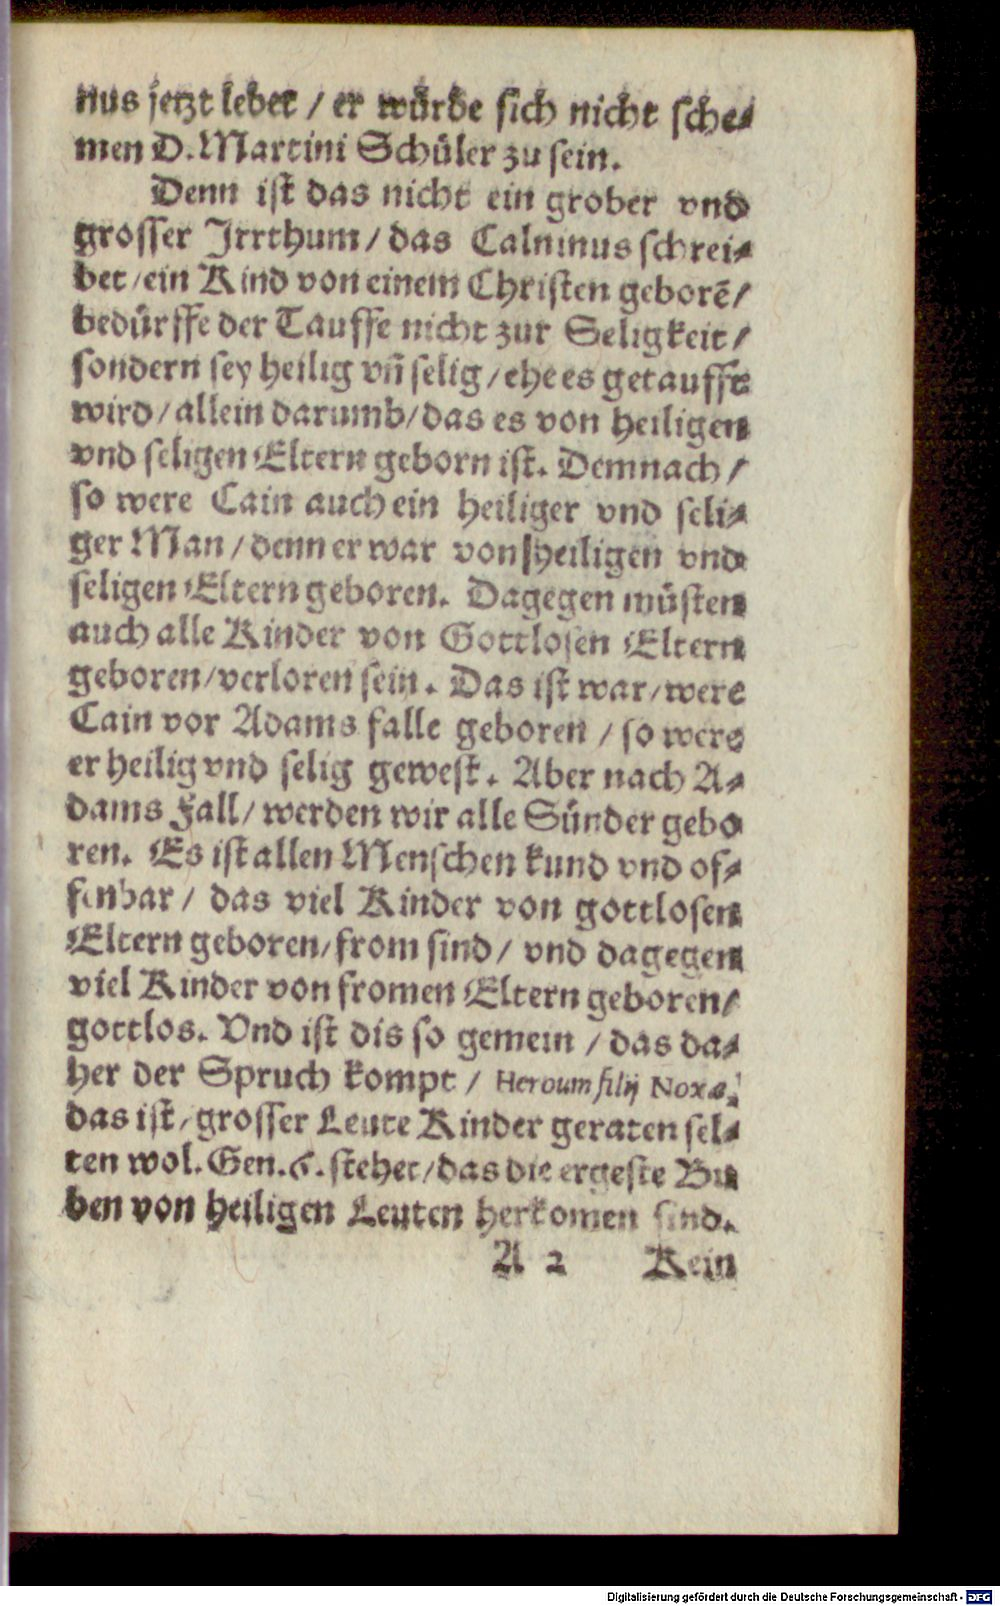 nus jetzt lebet / er würde sich nicht sche-
men D. Martini Schüler zu sein.
Denn ist das nicht ein grober vnd
grosser Jrrthum / das Caluinus schrei-
bet / ein Kind von einem Christen geborē /
bedürffe der Tauffe nicht zur Seligkeit /
sondern sey heilig vn̄ selig / ehe es getaufft
wird / allein darumb / das es von heiligen
vnd seligen Eltern geborn ist. Demnach /
so were Cain auch ein heiliger vnd seli-
ger Man / denn er war von heiligen vnd
seligen Eltern geboren. Dagegen müsten
auch alle Kinder von Gottlosen Eltern
geboren / verloren sein. Das ist war / were
Cain vor Adams falle geboren / so were
er heilig vnd selig gewest. Aber nach A-
dams Fall / werden wir alle Sünder gebo
ren. Es ist allen Menschen kund vnd of-
fenbar / das viel Kinder von gottlosen
Eltern geboren / from sind / vnd dagegen
viel Kinder von fromen Eltern geboren /
gottlos. Vnd ist dis so gemein / das da-
her der Spruch kompt / Heroum filij Noxæ,
das ist / grosser Leute Kinder geraten sel-
ten wol. Gen. 6. stehet / das die ergeste Bu
ben von heiligen Leuten herkomen sind.
A 2 Kein
Digitalisierung gefördert durch die Deutsche Forschungsgemeinschaft - DFG